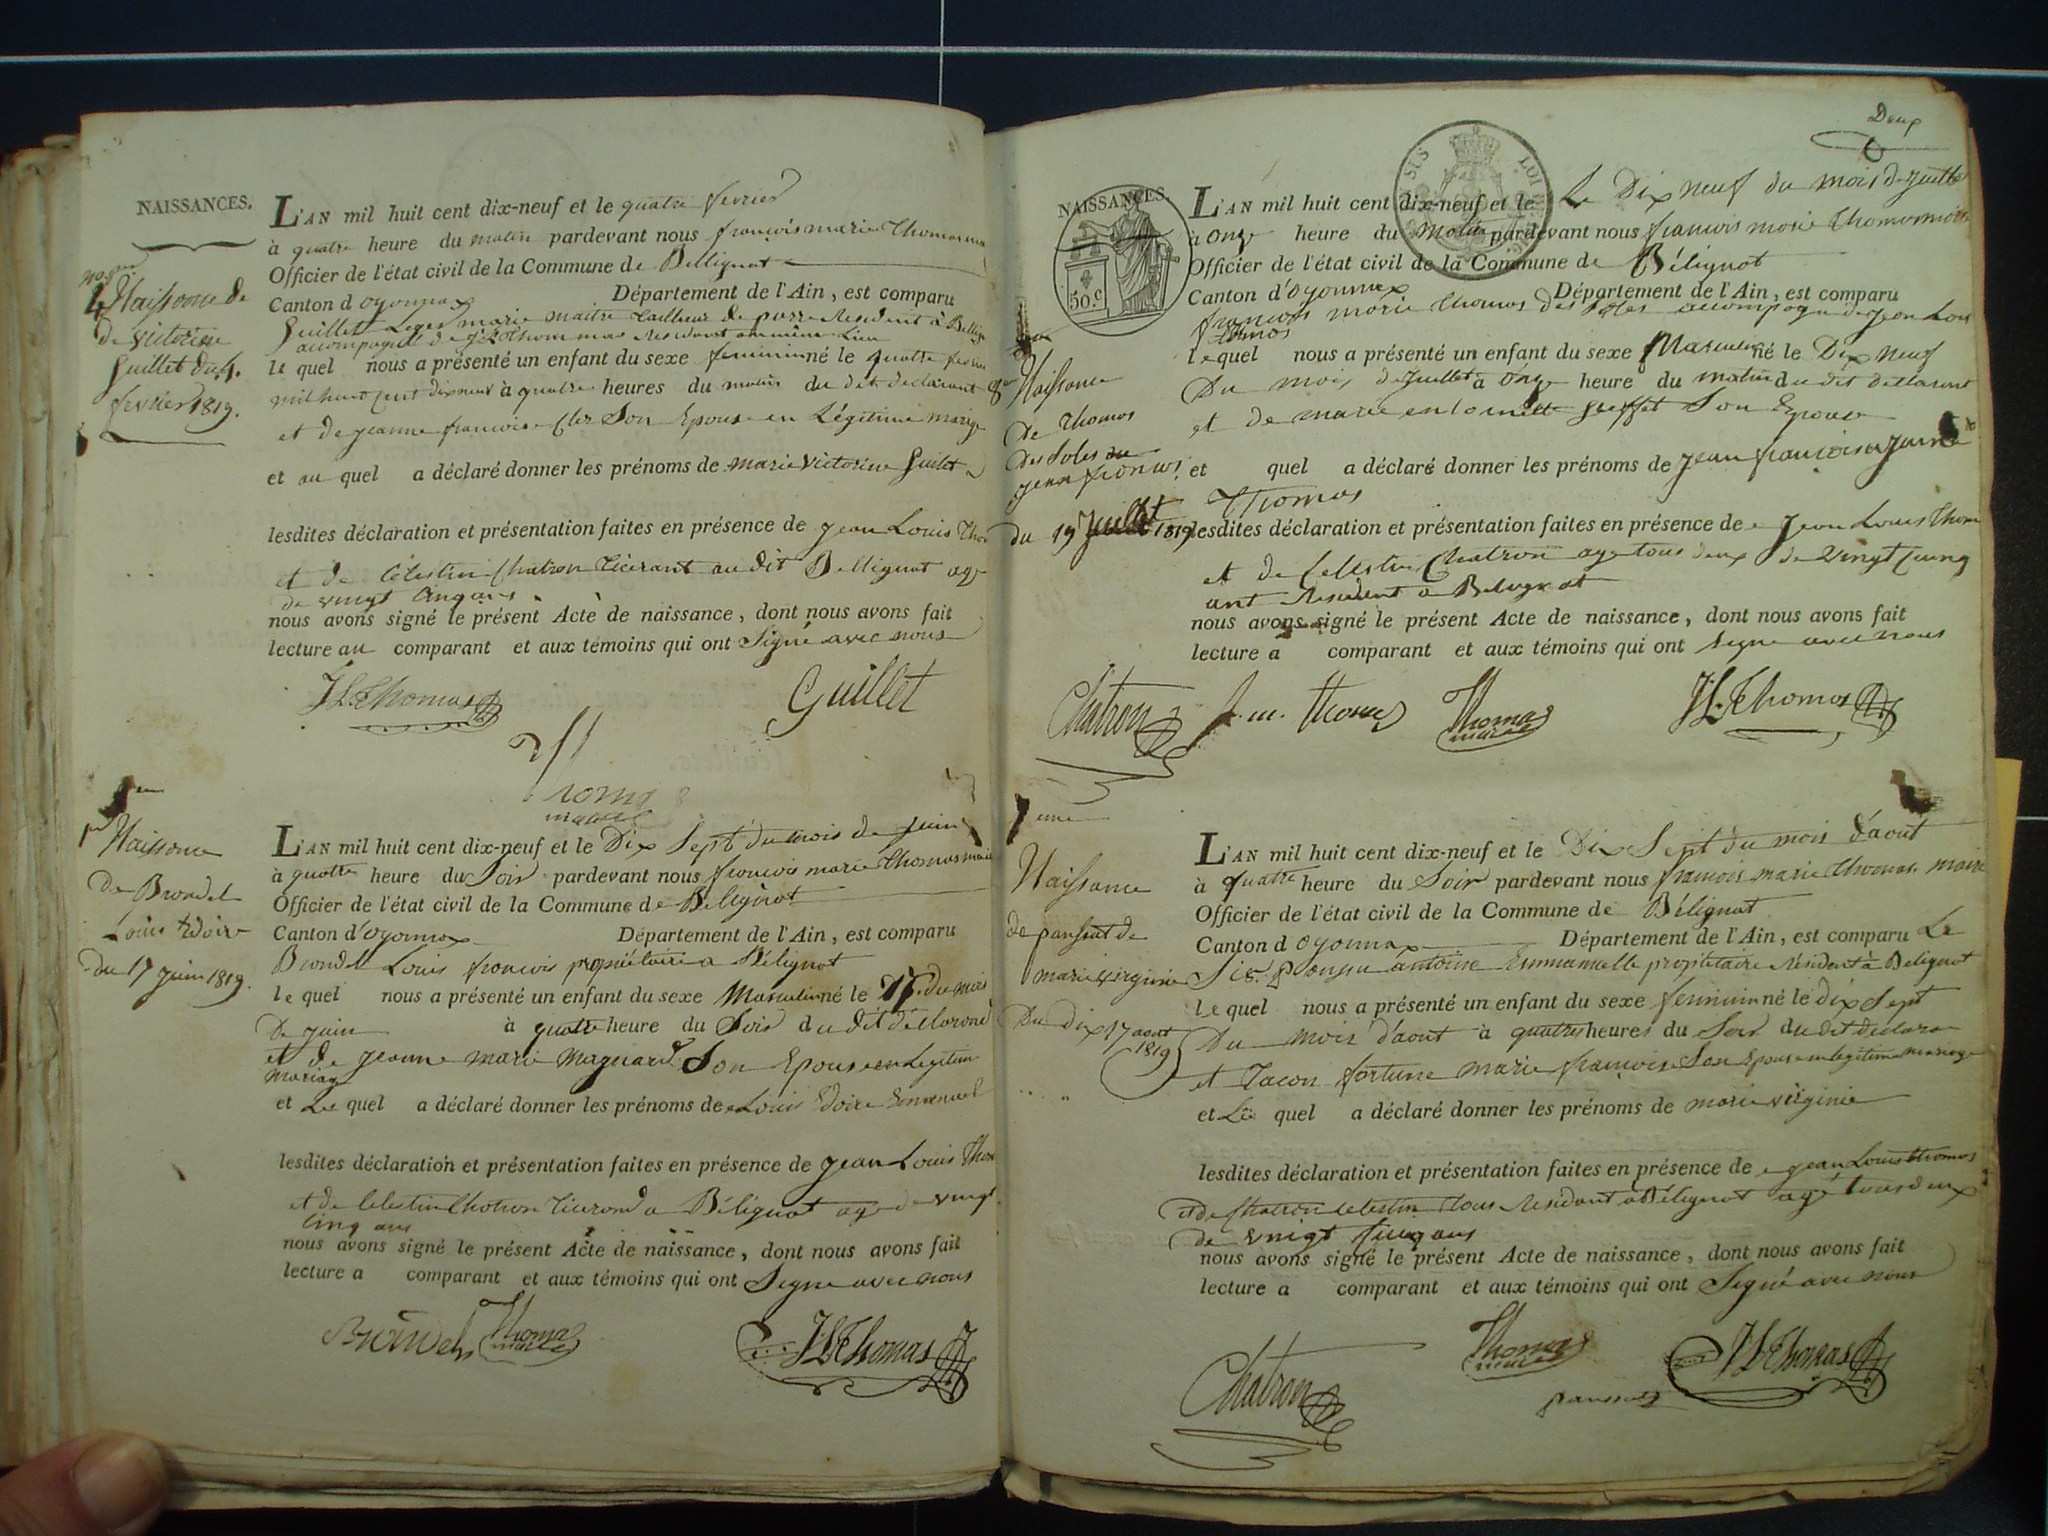 NAISSANCES.
L'AN mil huit cent dix-neuf et le quatre fevrier
à quatre heure du matin pardevant nous françois marie Thomas
Officier de l'état civil de la Commune de Bellignat
Canton d oyonnax Département de l'Ain, est comparu
Guillet Leger marie maitre tailleur de résident à
le quel nous a présenté un enfant du sexe feminin né le quatre
mil huit cent dixneuf à quatre heures du matin du dit declarant
et de jeanne françoise Son Epouse en Légitime
et au quel a déclaré donner les prénoms de marie victorine Guilet
lesdites déclaration et présentation faites en présence de jean Louis
et de Celestin Chatron au dit Bellignat
de vingt cinq ans
nous avons signé le présent Acte de naissance, dont nous avons fait
lecture au comparant et aux témoins qui ont Signé avec nous
4 Naissance de
de victorine
Guillet du 4.
fevrier 1819.
JL Thomas Guillet
Thomas
maire
L'AN mil huit cent dix-neuf et le Dix Sept du mois de juin
à quatre heure du Soir pardevant nous françois marie Thomas maire
Officier de l'état civil de la Commune de Bélignat
Canton d'oyonnax Département de l'Ain, est comparu
Brondel Louis françois propriétaire a Bélignat
le quel nous a présenté un enfant du sexe Masculin né le 17 du mois
De juin à quatre heure du Soir du dit
et de jeanne marie Magnard Son Epouse en Legitime
mariag
et Le quel a déclaré donner les prénoms de Louis Edoire
lesdites déclaration et présentation faites en présence de jean Louis
et de Celestin Chatron a Bélignat age de vingt
cinq ans
nous avons signé le présent Acte de naissance, dont nous avons fait
lecture a comparant et aux témoins qui ont Signe avec nous
Naissance
de Brondel
Louis Edoire
du 17 juin 1819.
Thomas
maire JL Thomas
Deux
NAISSANCES.
50.c
L'AN mil huit cent dix-neuf et le Le Dix neuf du mois de juillet
à onze heure du Matin pardevant nous francois marie Thomas
Officier de l'état civil de la Commune de Bélignat
Canton d'oyonnax Département de l'Ain, est comparu
francois marie thomas accompagné de jean Loui
thomas
le quel nous a présenté un enfant du sexe Masculin né le Dix neuf
Du mois de juillet à onze heure du matin du dit declarant
et de marie Son Epouse
et quel a déclaré donner les prénoms de jean francois
Thomas
lesdites déclaration et présentation faites en présence de jean Louis thom
et de Celestin Chatron age tous deux de vingt cinq
ant résident a
nous avons signé le présent Acte de naissance, dont nous avons fait
lecture a comparant et aux témoins qui ont signe avec nous
Naissance
De Thomas
du 19 juillet 1819
Chatron f. m. thomas Thomas
maire JL Thomas
7 eme
L'AN mil huit cent dix-neuf et le Dix Sept du mois d'aout
à quatre heure du Soir pardevant nous francois marie thomas maire
Officier de l'état civil de la Commune de Bélignat
Canton d oyonnax Département de l'Ain, est comparu Le
antoine Emmanuelle propritaire résident à Belignat
le quel nous a présenté un enfant du sexe feminin né le dix Sept
Du mois d'aout à quatre heures du Soir du dit
et Tacon fortune marie françoise Son Epouse en legitime mariage
et Le quel a déclaré donner les prénoms de marie virginie
lesdites déclaration et présentation faites en présence de jean Louis thomas
et de Chatron celestin tous residant a Bélignat agé tous deux
de vingt cinq ans
nous avons signé le présent Acte de naissance, dont nous avons fait
lecture a comparant et aux témoins qui ont Signé avec nous
Naissance
marie virginie
Du Dix 17 aout
1819
Chatron Thomas
maire JL Thomas